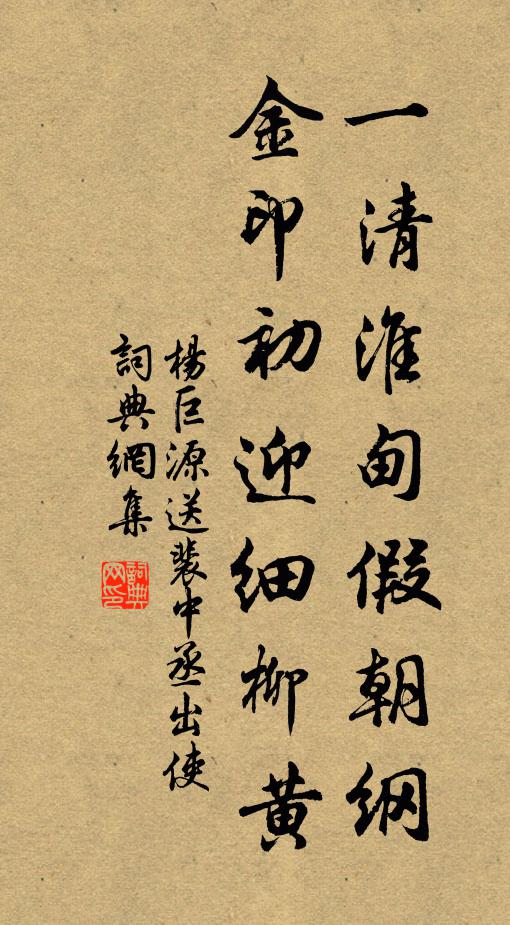 一清淮甸假朝綱
金印初迎細柳黄
楊巨源送裴中丞出使
詞典網集
詞典網印